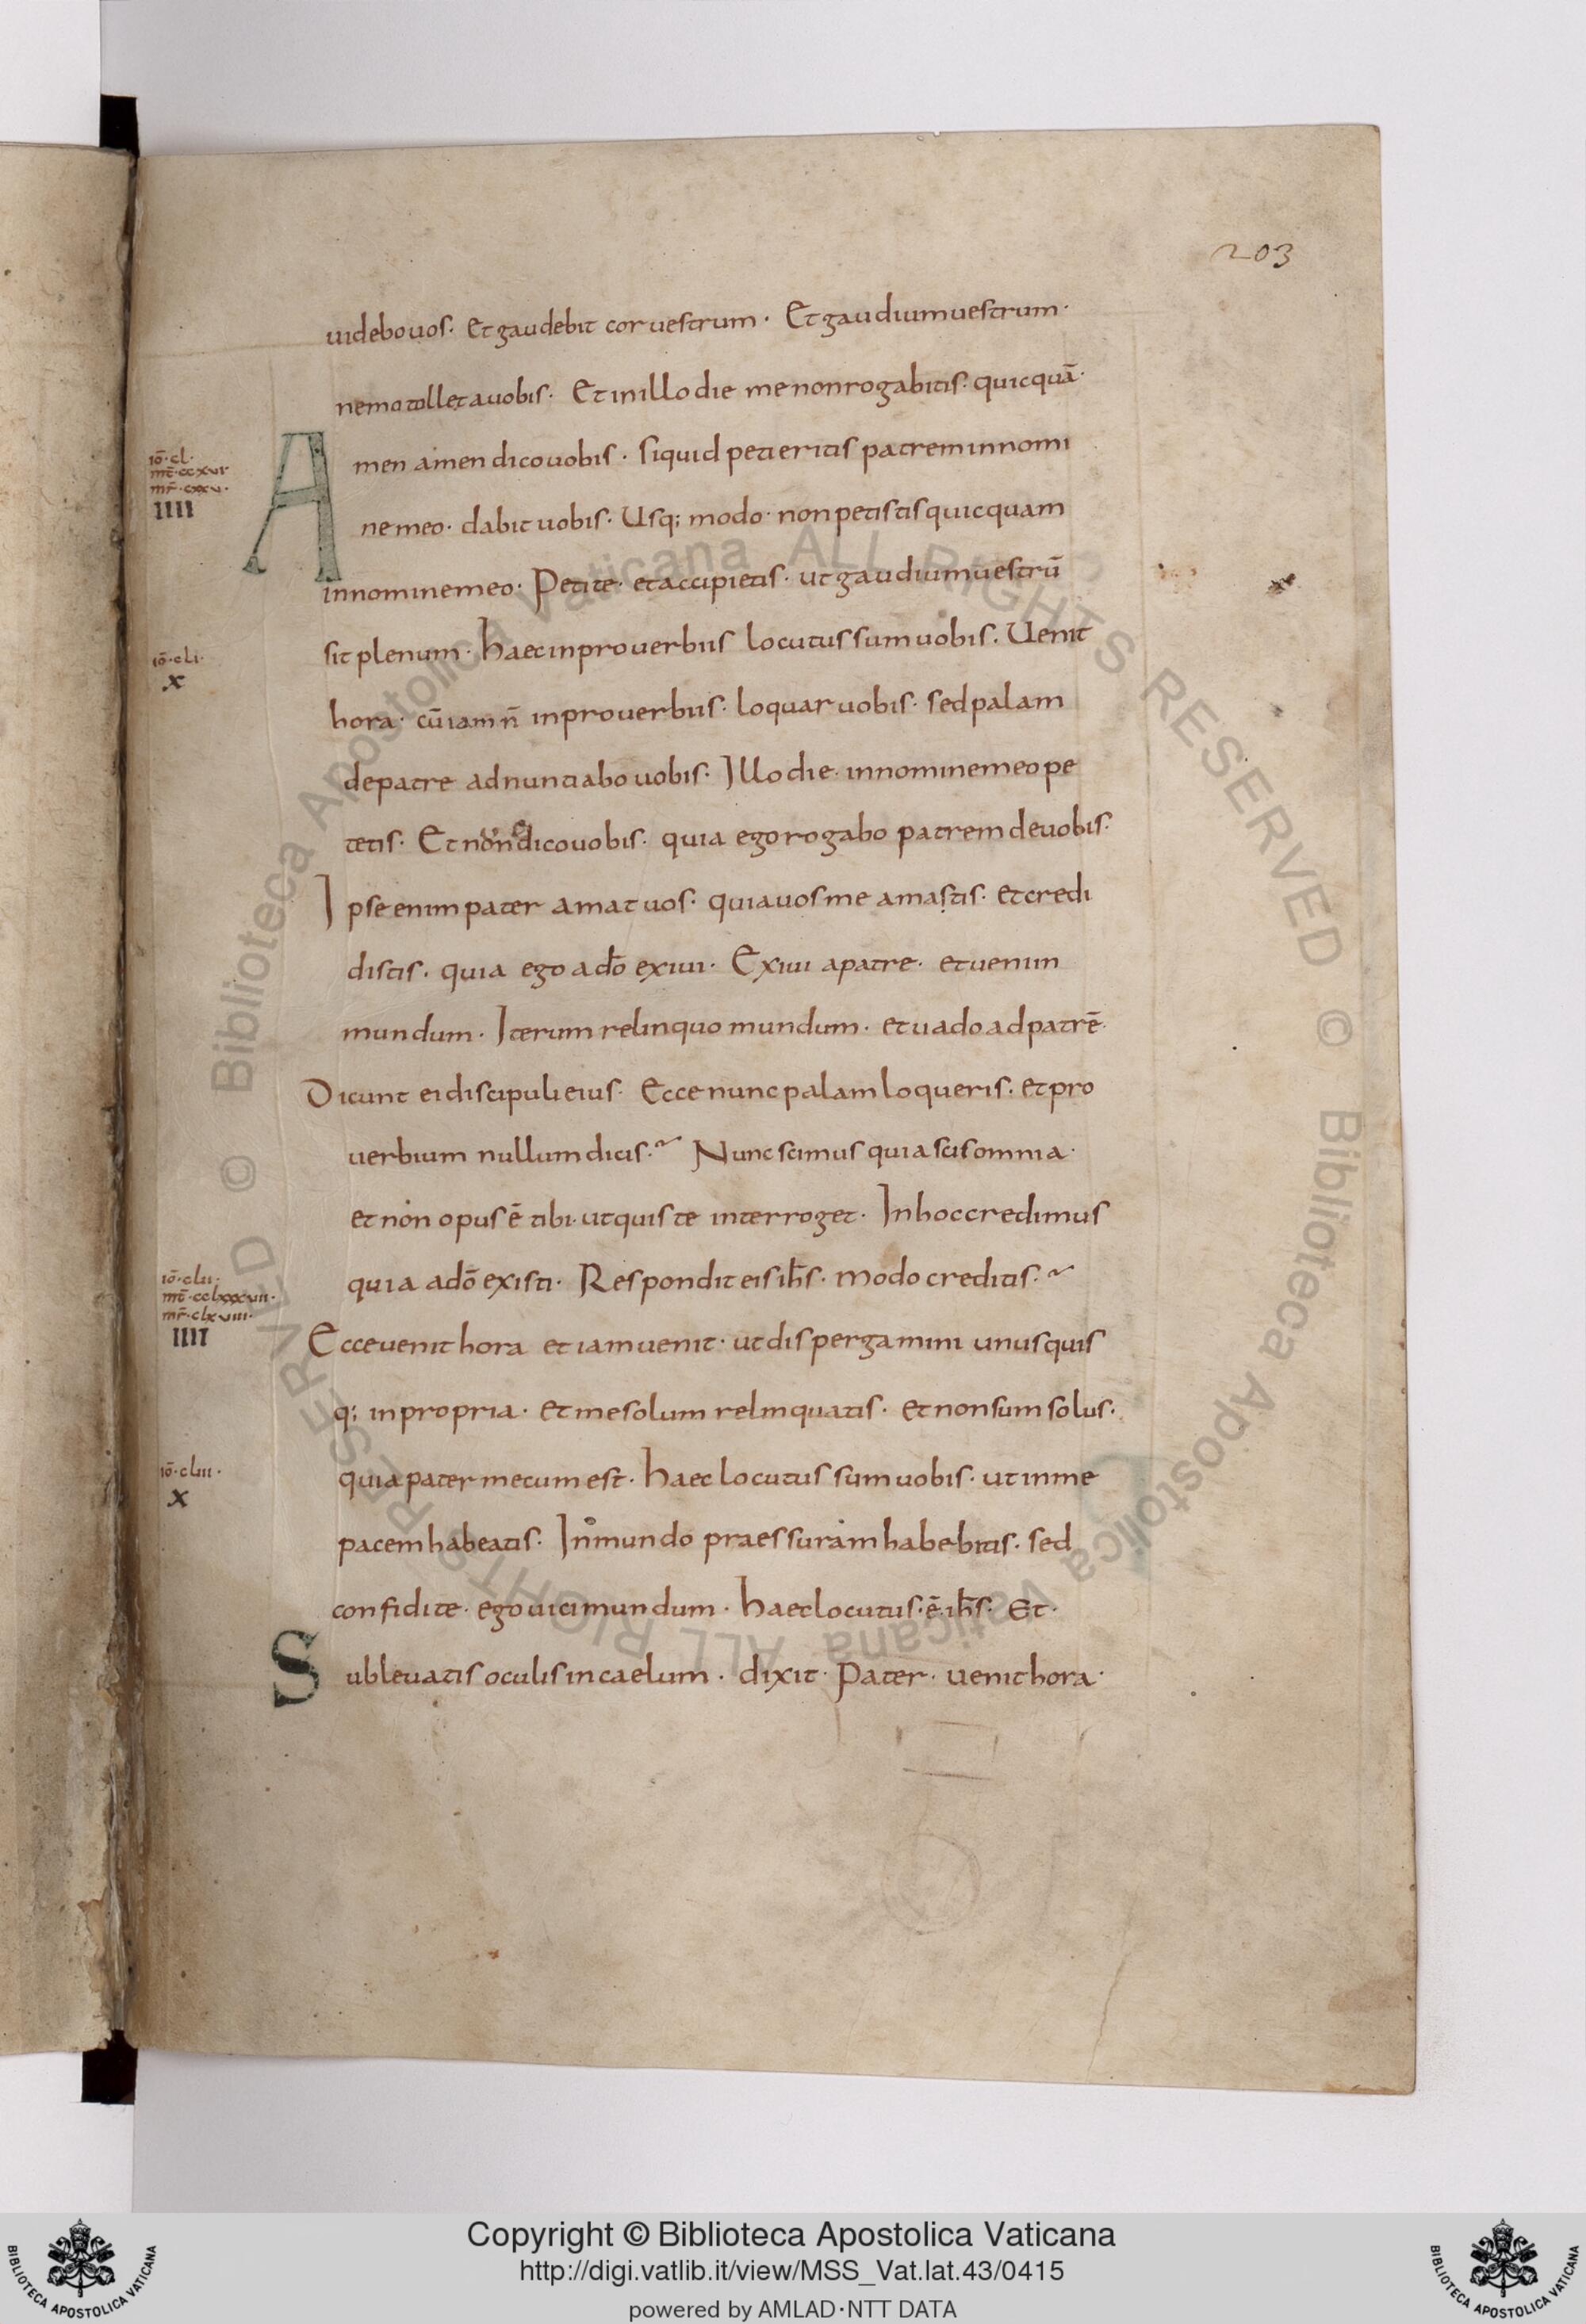 203
uidebouos· Et gaudebit cor uestrum· Et gaudium uestrum·
nemo tollet auobis· Et in illo die me non rogabitis· quicquā·
iō·cl·
mt̄·ccxvi·
mr̄·cxxv·
IIII
Amen amen dico uobis· si quid petieritis patrem in nomi
ne meo· dabit uobis· Usq; modo· non petistis quicquam
in nomine meo· Petite· et accipietis· ut gaudium uestrū
iō·cli·
X
sit plenum· haec in prouerbiis locutus sum uobis· Uenit
hora· cū iam n̄ in prouerbiis· loquar uobis· sed palam
de patre adnuntiabo uobis· Illo die· in nomine meo pe
tetis· Et non dico uobis· quia ego rogabo patrem de uobis·
Ipse enim pater amat uos· quia uos me amastis· et credi
distis· quia ego a dō exiui· Exiui a patre· et ueni in
mundum· Iterum relinquo mundum· et uado ad patrē·
Dicunt ei discipuli eius· Ecce nunc palam loqueris· et pro
uerbium nullum dicis·~ Nunc scimus quia scis omnia·
et non opus ē tibi· ut quis te interroget· In hoc credimus
iō·clii·
mt̄·cclxxxvii·
mr̄·clxviii·
IIII
quia a dō existi· Respondit eis ih̄s· modo creditis·~
Ecce uenit hora et iam uenit· ut dispergamini unusquis
q; in propria· et me solum relinquatis· et non sum solus·
iō·cliii·
X
quia pater mecum est· haec locutus sum uobis· ut in me
pacem habeatis· In mundo praessuram habebitis· sed
confidite· ego uici mundum· haec locutus·ē·ih̄s· Et·
Subleuatis oculis in caelum· dixit· Pater· uenit hora·
© Biblioteca Apostolica Vaticana ALL RIGHTS RESERVED
© Biblioteca Apostolica Vaticana ALL RIGHTS RESERVED
Copyright © Biblioteca Apostolica Vaticana
http://digi.vatlib.it/view/MSS_Vat.lat.43/0415
powered by AMLAD·NTT DATA
BIBLIOTECA APOSTOLICA VATICANA
BIBLIOTECA APOSTOLICA VATICANA